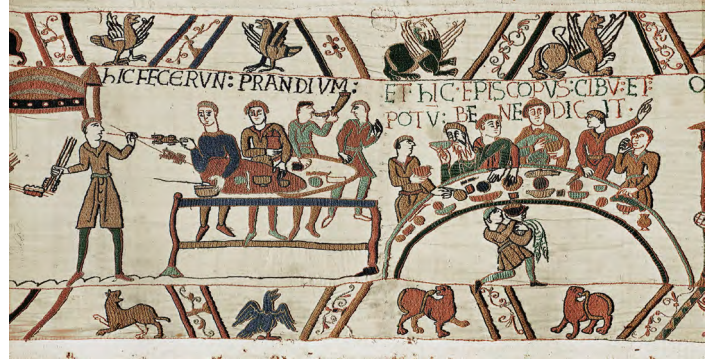 hIC FECERVN: PRANDIVM:
ET hIC·EPISCOPVS:CIBV:ET:
POTV: BE NE DIC IT·
O